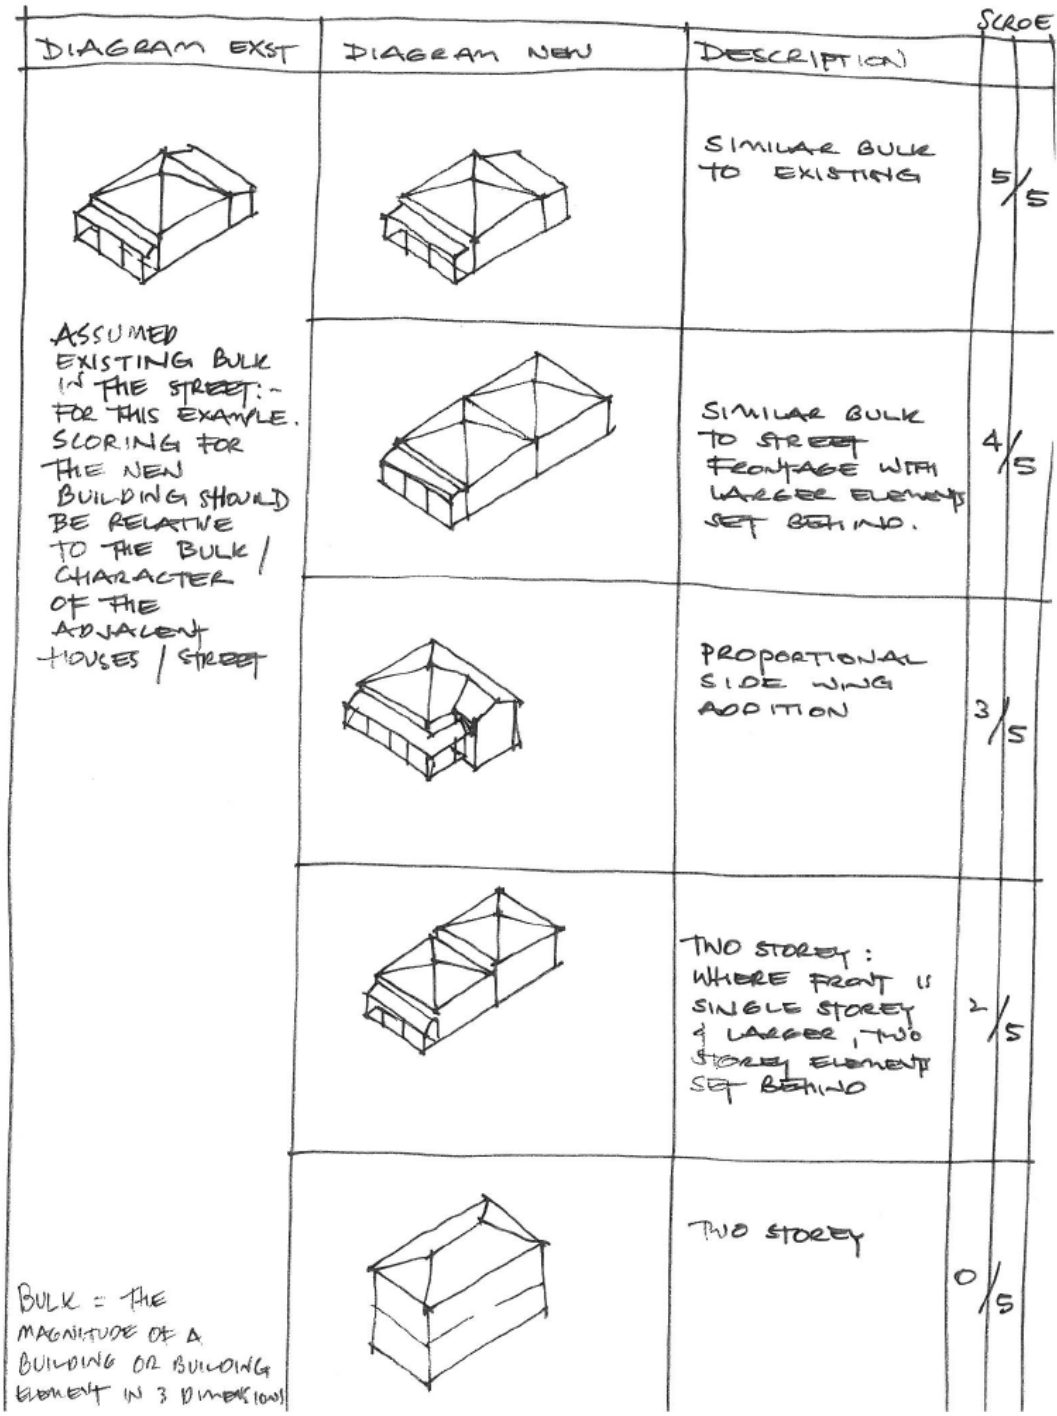 SCROE
DIAGRAM EXST
DIAGRAM NEW
DESCRIPTION
SIMILAR BULK
TO EXISTING
5/5
ASSUMED
EXISTING BULK
IN THE STREET:-
FOR THIS EXAMPLE.
SCORING FOR
THE NEW
BUILDING SHOULD
BE RELATIVE
TO THE BULK /
CHARACTER
OF THE
ADJACENT
HOUSES / STREET
SIMILAR BULK
TO STREET
FRONTAGE WITH
LARGER ELEMENTS
SET BEHIND.
4/5
PROPORTIONAL
SIDE WING
ADDITION
3/5
TWO STOREY:
WHERE FRONT IS
SINGLE STOREY
& LARGER, TWO
STOREY ELEMENTS
SET BEHIND
2/5
TWO STOREY
0/5
BULK = THE
MAGNITUDE OF A
BUILDING OR BUILDING
ELEMENT IN 3 DIMENSIONS